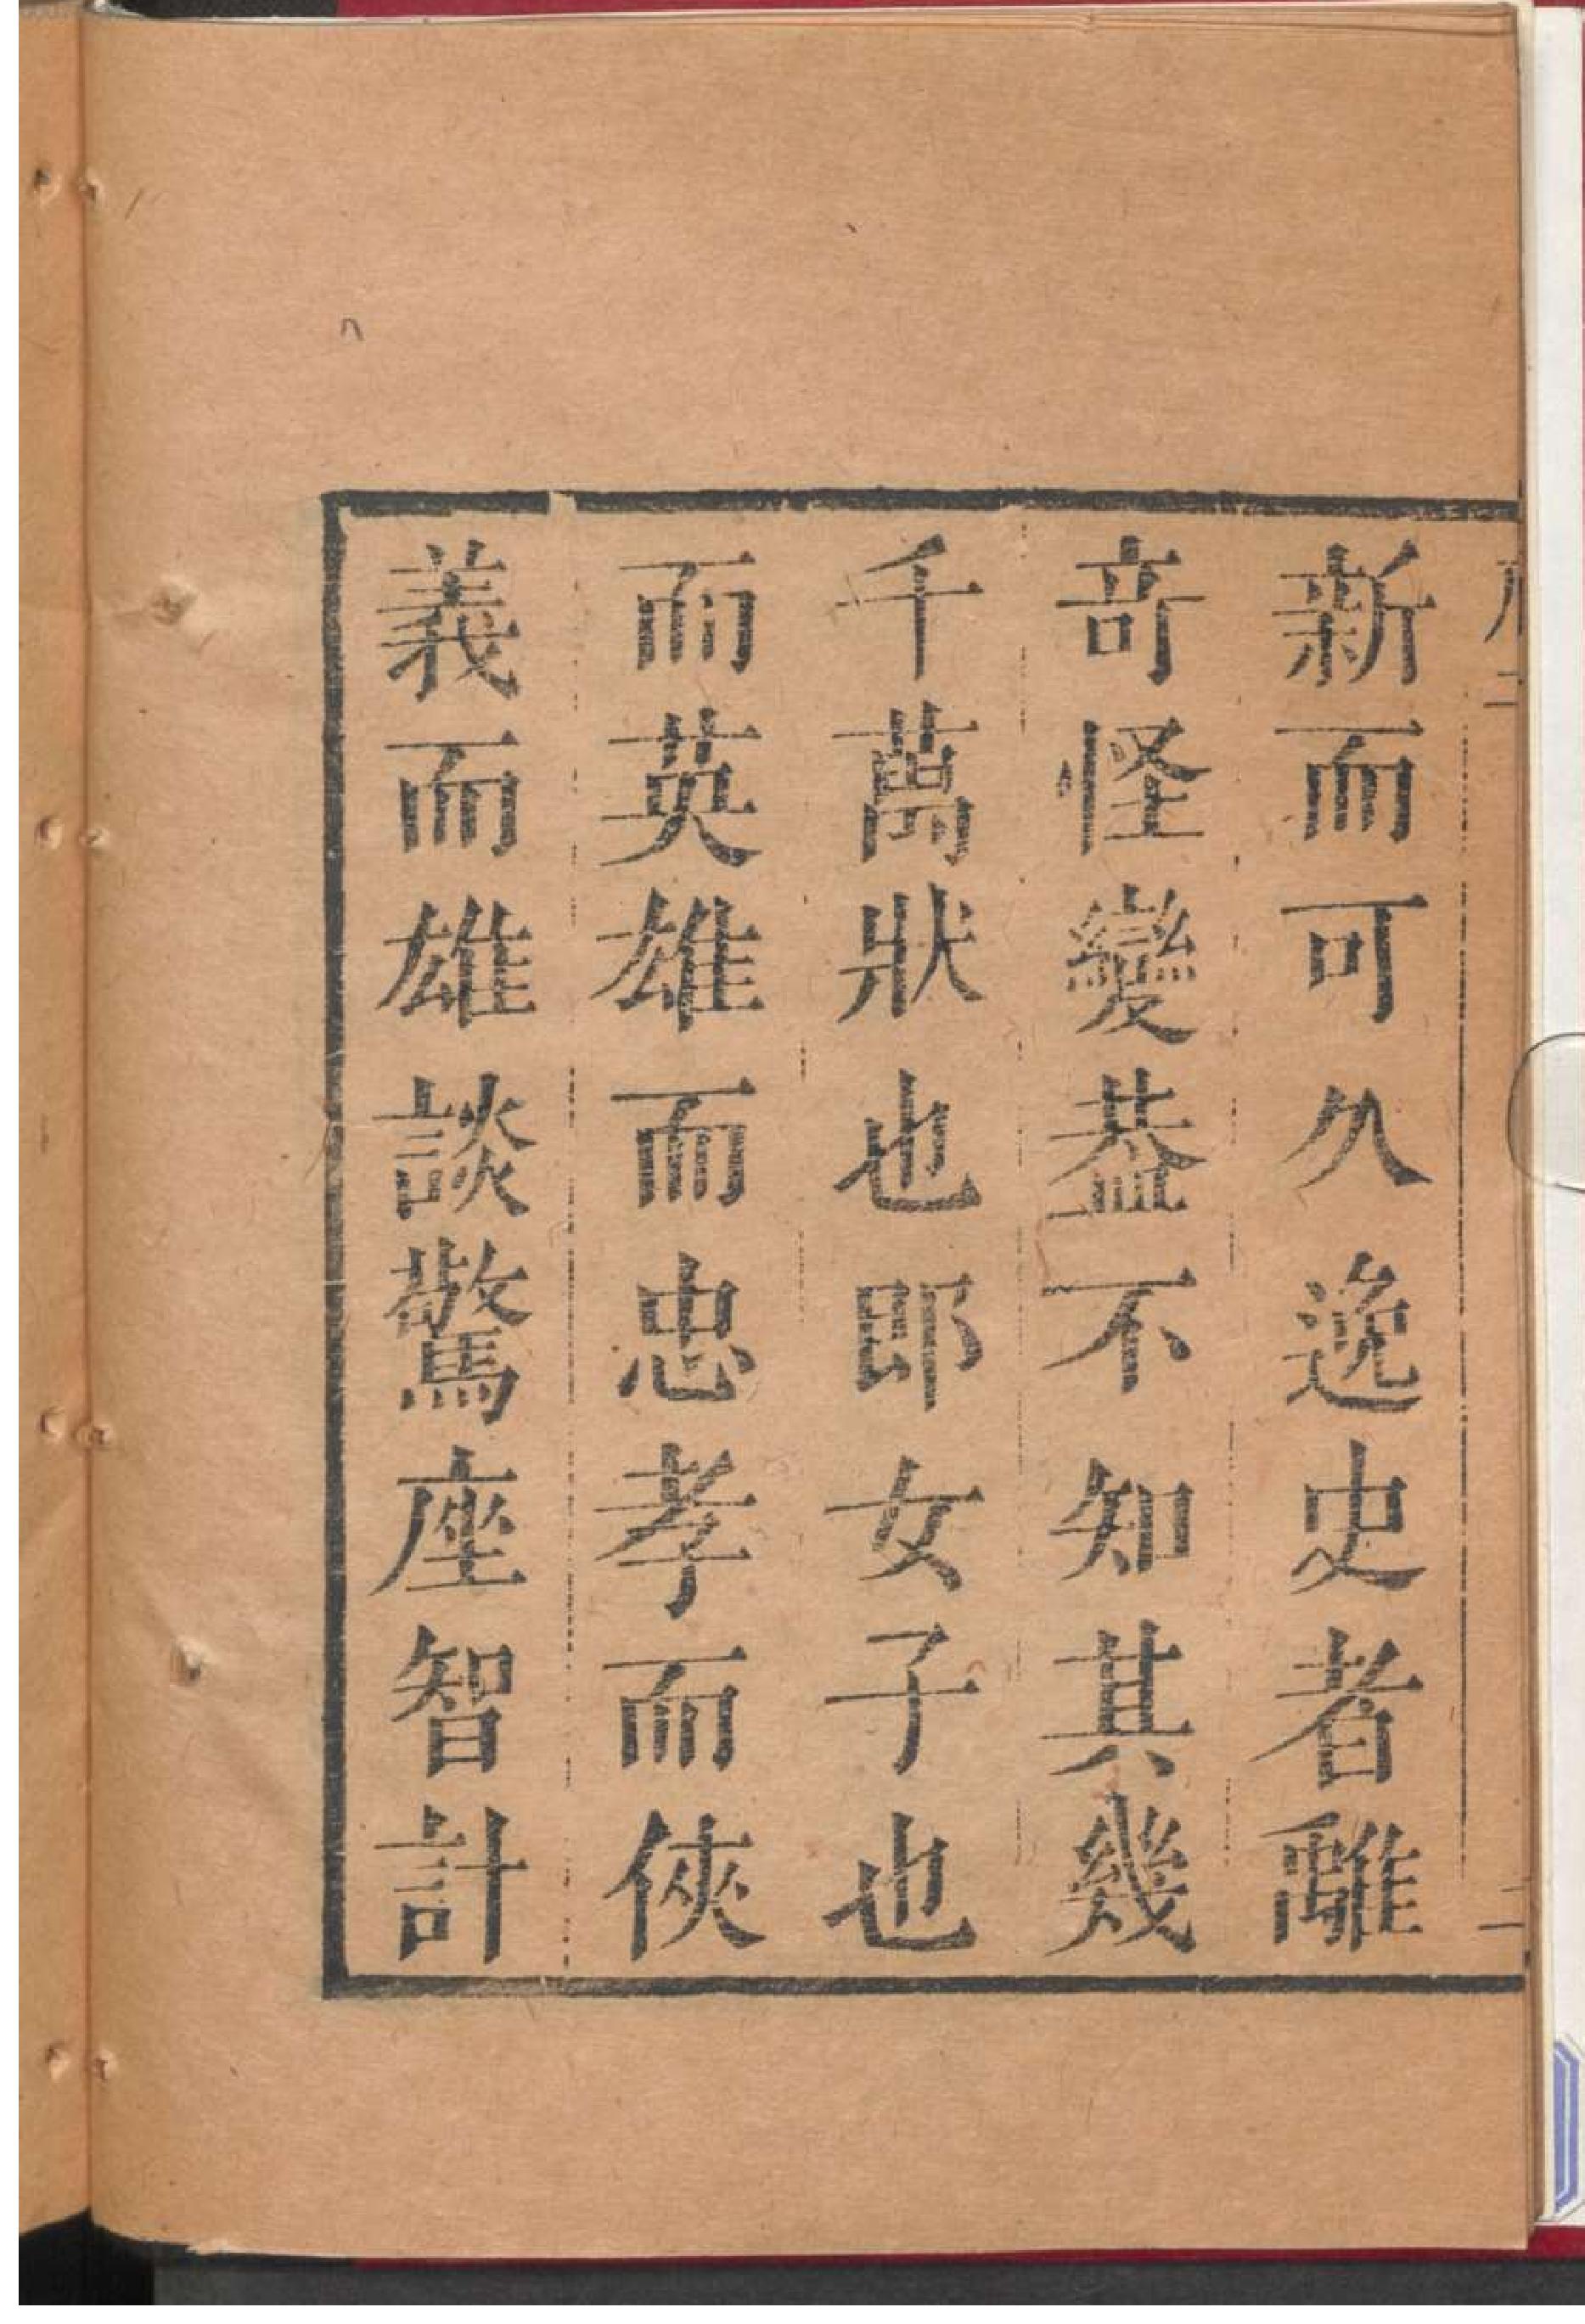 新而可久逸史者離
奇怪變葢不知其幾
千萬狀也郎女子也
而英雄而忠孝而俠
義而雄談驚座智計
二